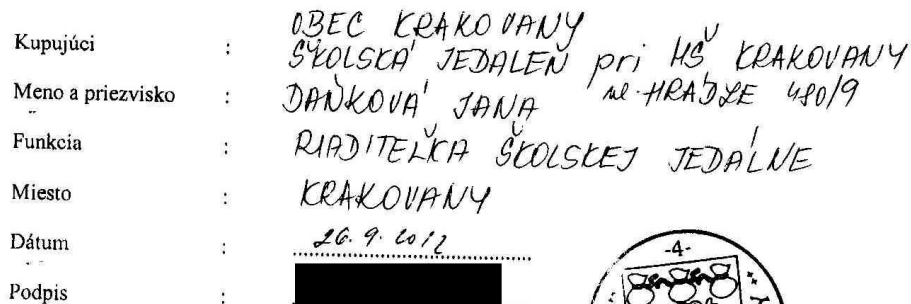 Kupujúci : OBEC KRAKOVANY
ŠKOLSKÁ JEDALEŇ pri MŠ KRAKOVANY
Meno a priezvisko : DAŇKOVÁ JANA ul. HRÁDZE 480/9
Funkcia : RIADITEĽKA ŠKOLSKEJ JEDÁLNE
Miesto : KRAKOVANY
Dátum : 26. 9. 2012
Podpis :
-4-